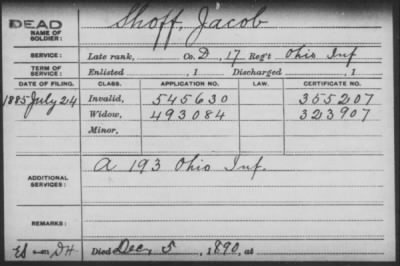 DEAD
NAME OF SOLDIER:
Shoff, Jacob
SERVICE: Late rank, Co. D, 17 Reg't Ohio Inf
TERM OF SERVICE: Enlisted , 1 Discharged , 1
DATE OF FILING. CLASS. APPLICATION NO. LAW. CERTIFICATE NO.
1885 July 24 Invalid, 545630 355207
Widow, 493084 323907
Minor,
ADDITIONAL SERVICES: A 193 Ohio Inf.
REMARKS:
Died Dec. 5, 1890, at